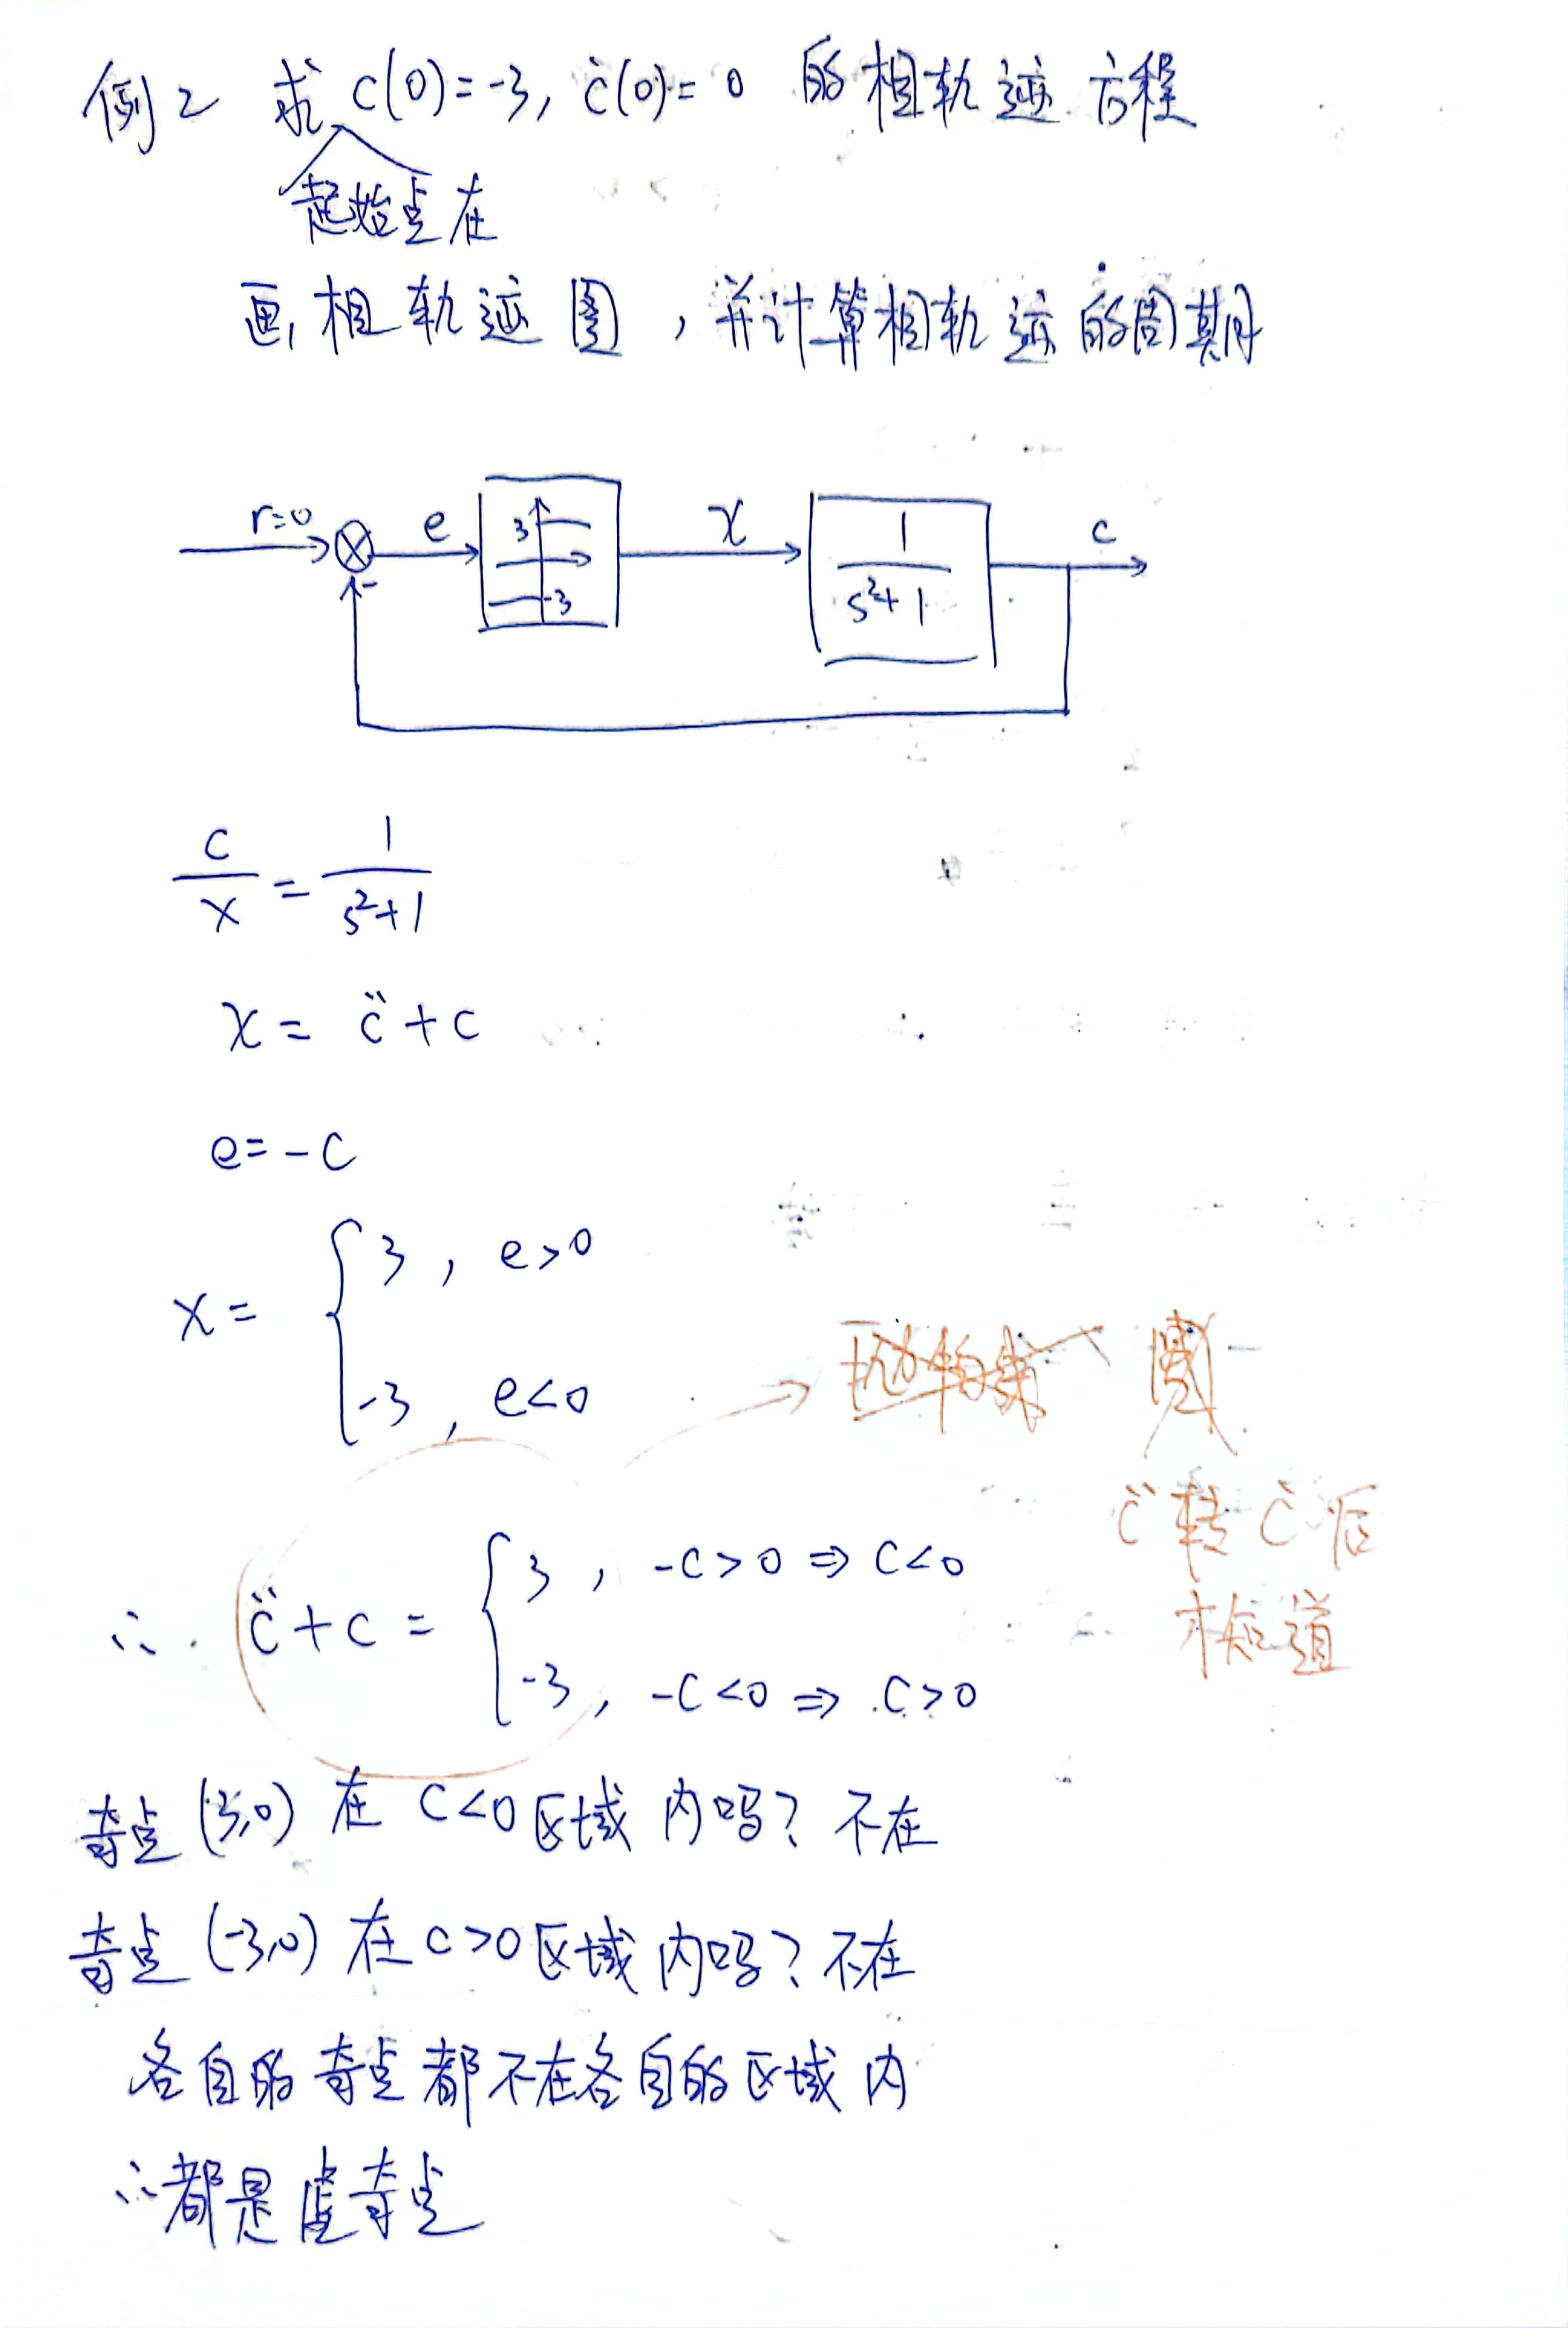 例2 求 c(0)=-3, ċ(0)=0 的相轨迹方程
起始点在
画相轨迹图，并计算相轨迹的周期
r=0 e 3 -3 x 1/(s²+1) c
-
C/X = 1/(s²+1)
x = c̈+c
e=-c
x= { 3, e>0
-3, e<0
圆
c̈转ċ后
才知道
∴ c̈+c = { 3, -c>0 ⇒ c<0
-3, -c<0 ⇒ c>0
奇点(3,0)在 c<0区域内吗？不在
奇点(-3,0)在c>0区域内吗？不在
各自的奇点都不在各自的区域内
∴都是虚奇点